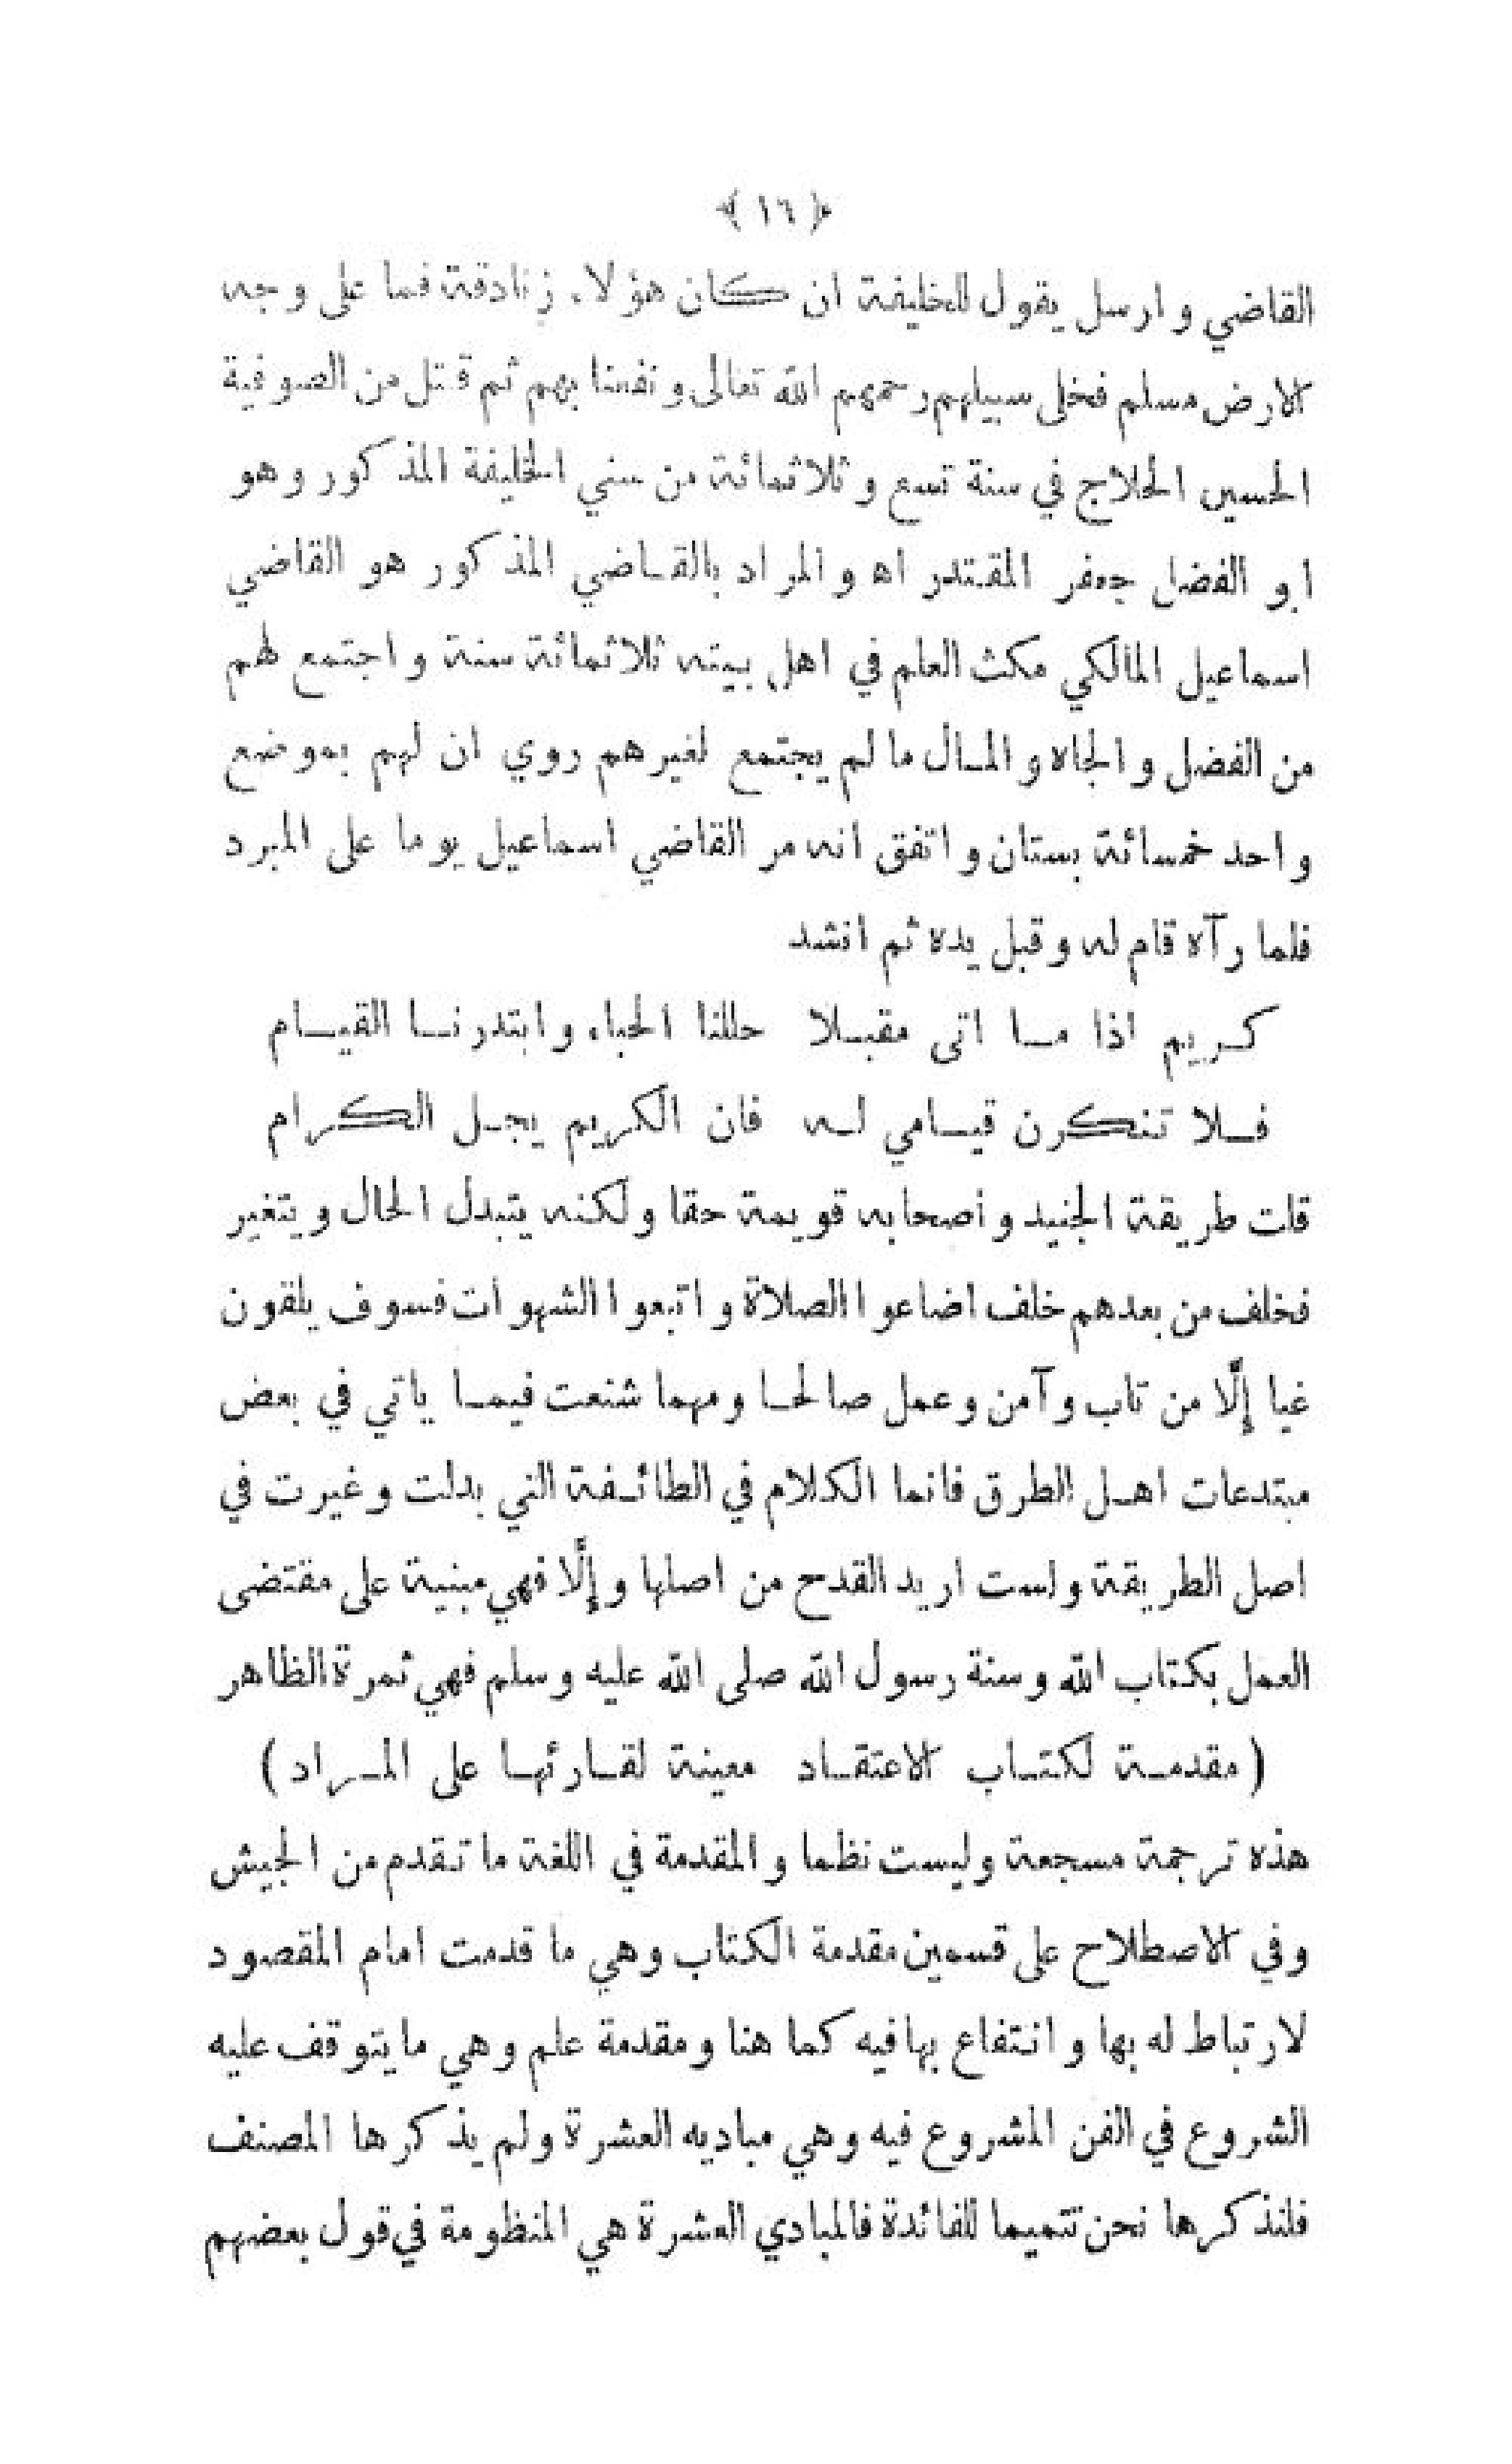 ﴿١٦﴾
القاضي وارسل يقول للخليفة ان كان هؤلاء زنادقة فما على وجه
الارض مسلم فخلى سبيلهم رحمهم الله تعالى ونفعنا بهم ثم قتل من الصوفية
الحسين الحلاج في سنة تسع وثلاثمائة من سني الخليفة المذكور وهو
ابو الفضل جعفر المقتدر اه والمراد بالقاضي المذكور هو القاضي
اسماعيل المالكي مكث العلم في اهل بيته ثلاثمائة سنة واجتمع لهم
من الفضل والجاه والمال ما لم يجتمع لغيرهم روي ان لهم بموضع
واحد خمسائة بستان واتفق انه مر القاضي اسماعيل يوما على المبرد
فلما رآه قام له وقبل يده ثم انشد
كريم اذا ما اتى مقبلا حللنا الحباء وابتدرنا القيام
فلا تنكرن قيامي له فان الكريم يجل الكرام
قلت طريقة الجنيد واصحابه قويمة حقا ولكنه يتبدل الحال ويتغير
فخلف من بعدهم خلف اضاعوا الصلاة واتبعوا الشهوات فسوف يلقون
غيا إلَّا من تاب وآمن وعمل صالحا ومهما شنعت فيما ياتي في بعض
مبتدعات اهل الطرق فانما الكلام في الطائفة التي بدلت وغيرت في
اصل الطريقة ولست اريد القدح من اصلها وإلَّا فهي مبنية على مقتضى
العمل بكتاب الله وسنة رسول الله صلى الله عليه وسلم فهي ثمرة الظاهر
(مقدمة لكتاب الاعتقاد معينة لقارئها على المراد)
هذه ترجمة مسجعة وليست نظما والمقدمة في اللغة ما تقدم من الجيش
وفي الاصطلاح على قسمين مقدمة الكتاب وهي ما قدمت امام المقصود
لارتباط له بها وانتفاع بها فيه كما هنا ومقدمة علم وهي ما يتوقف عليه
الشروع في الفن المشروع فيه وهي مباديه العشرة ولم يذكرها المصنف
فلنذكرها نحن تتميما للفائدة فالمبادي العشرة هي المنظومة في قول بعضهم